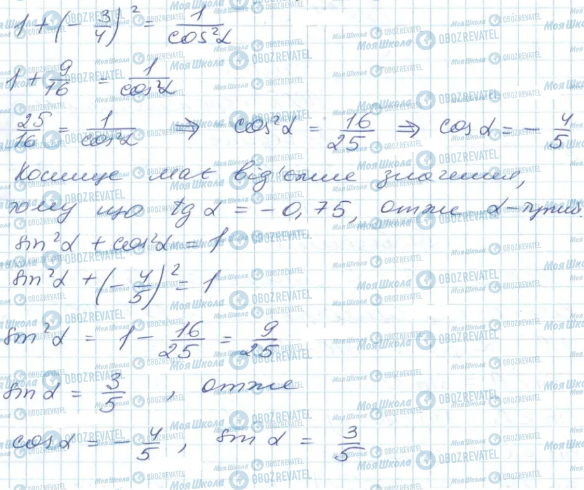 1 + (- 3/4)² = 1/cos²α
1 + 9/16 = 1/cos²α
25/16 = 1/cos²α ⇒ cos²α = 16/25 ⇒ cos α = - 4/5
Косинус має від'ємне значення,
тому що tg α = -0,75, отже α-тупий
sin²α + cos²α = 1
sin²α + (- 4/5)² = 1
sin²α = 1 - 16/25 = 9/25
sin α = 3/5, отже
cos α = - 4/5, sin α = 3/5
Моя Школа
OBOZREVATEL